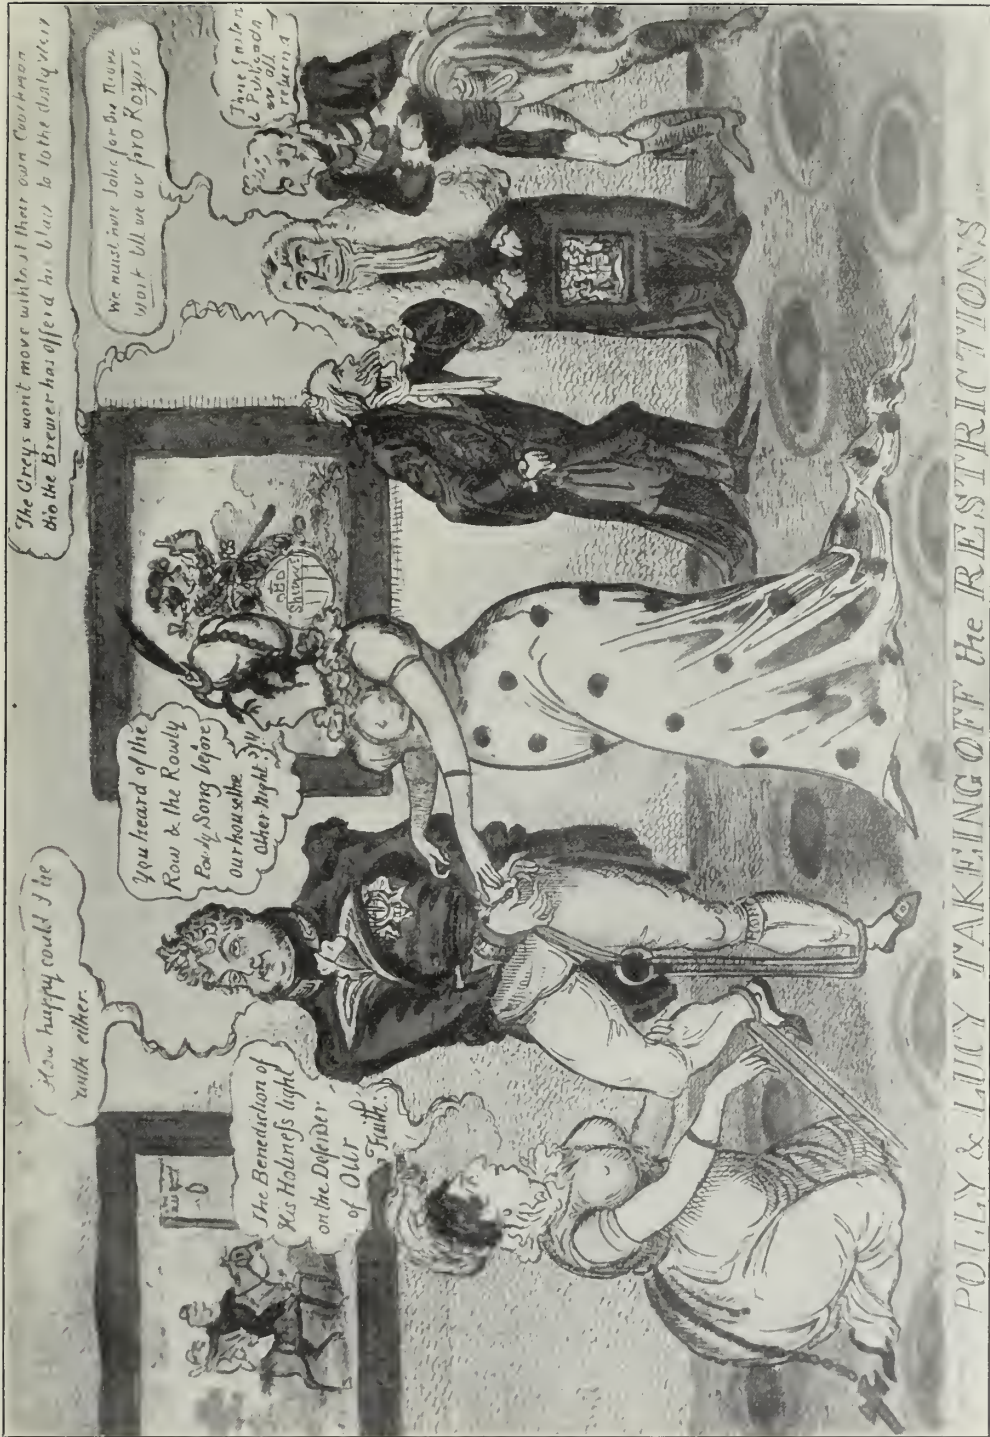 How happy could I be
with either.
The Benediction of
His Holiness light
on the Defender
of OUR
Faith.
You heard of the
Row & the Rowly
Powly Song before
our house the
other night?!!
The Greys wont move without their own Coachman
the Brewer has offerd his to the
We must for the
wont till we are pro
are all
returnd
POLLY & LUCY TAKEING OFF the RESTRICTIONS